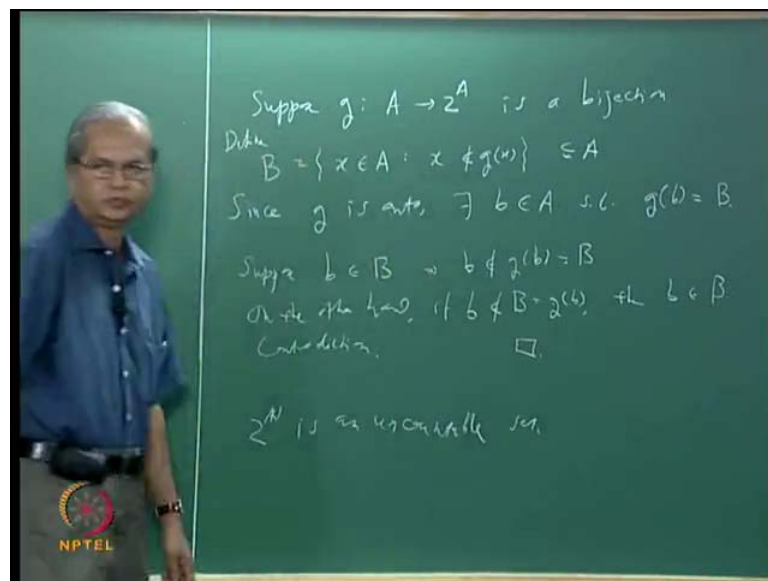 Suppose g : A → 2^A is a bijection
Define
B = { x ∈ A : x ∉ g(x) } ⊆ A
Since g is onto, ∃ b ∈ A s.t. g(b) = B.
Suppose b ∈ B ⇒ b ∉ g(b) = B
On the other hand, if b ∉ B = g(b), then b ∈ B.
Contradiction. □.
2^ℕ is an uncountable set.
NPTEL